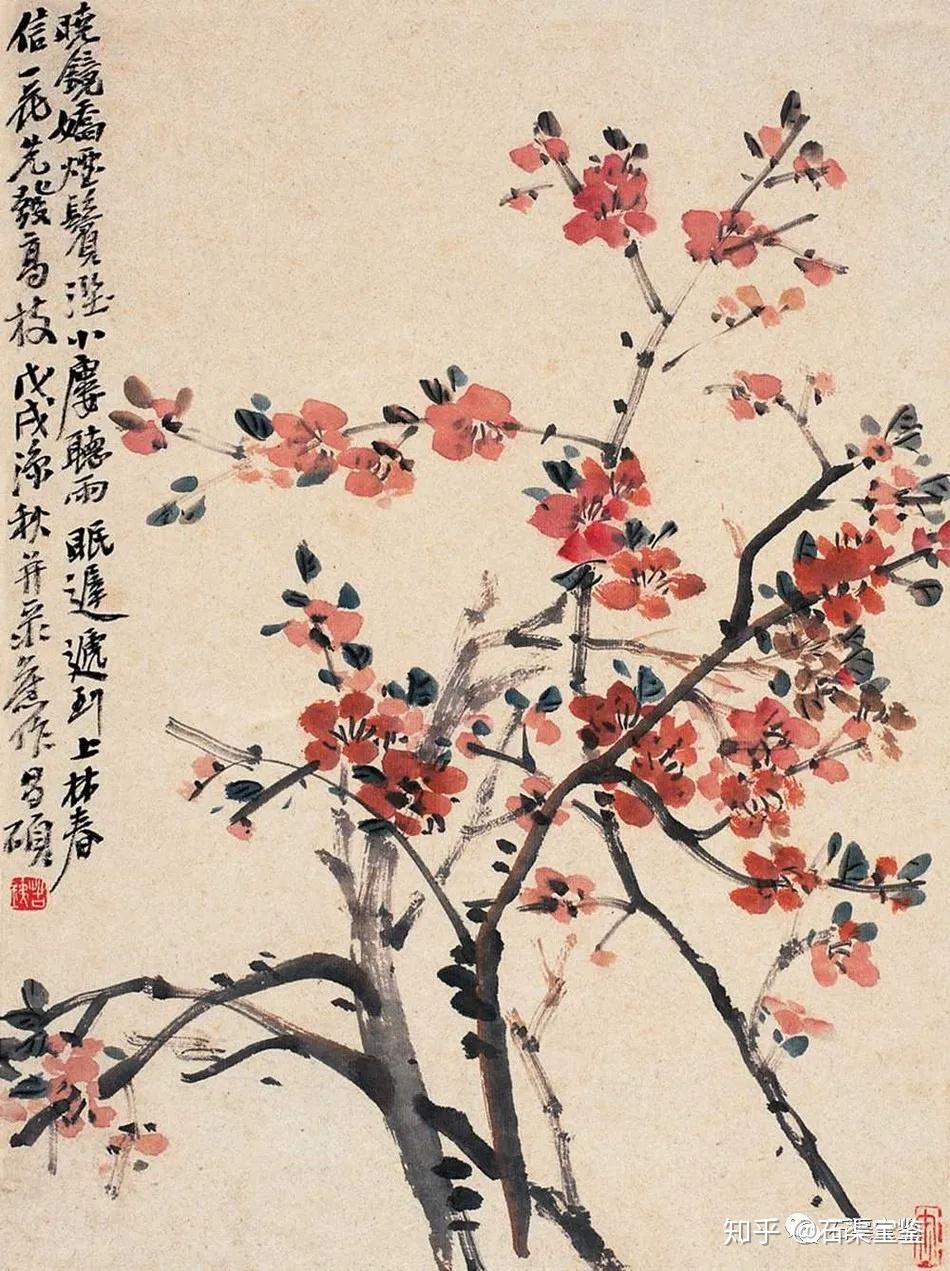 晓镜嬌煙鬢溼小廔聽雨眠遲遞到上林春
信一花先發高枝戊戌涼秋并录舊作昌碩
苦銕
知乎 @石渠宝鉴